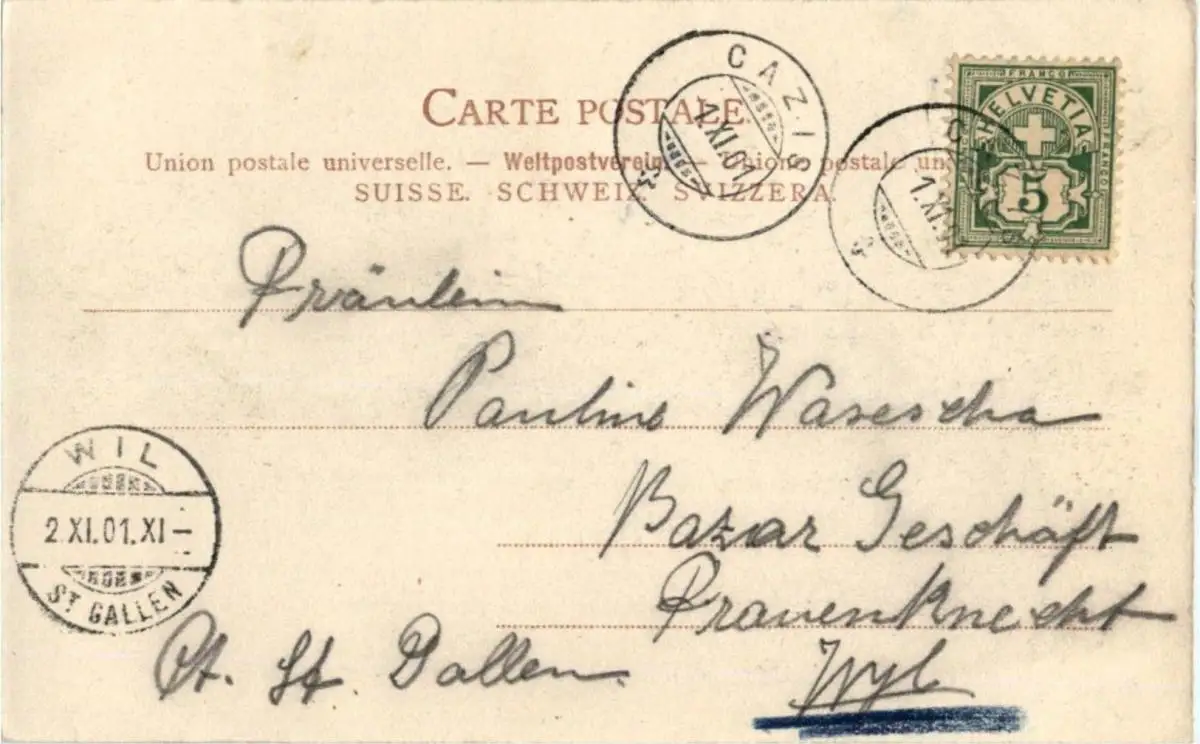 CARTE POSTALE.
Union postale universelle. — Weltpostverein. — Unione postale un
SUISSE. SCHWEIZ. SVIZZERA.
CAZIS
1.XI.01
1.XI.
FRANCO
HELVETIA
FRANCO
5
Fräulein
Pauline Wasescha
Bazar Geschäft
Frauenknecht
Wyl
Ct. St. Gallen.
WIL
2.XI.01.XI–
ST GALLEN